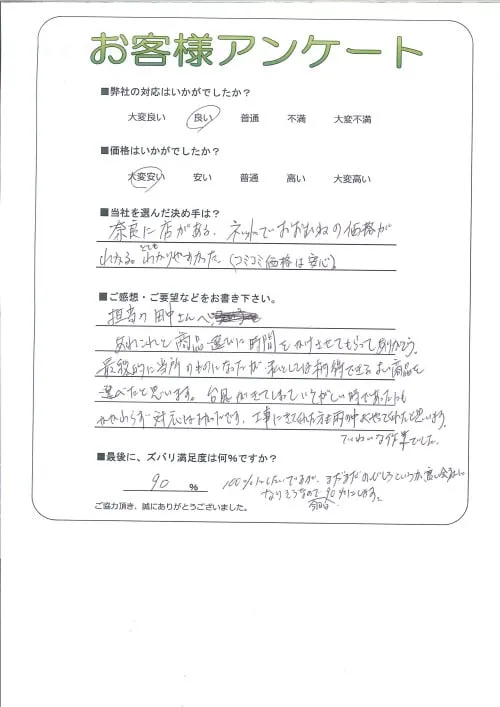 お客様アンケート
■弊社の対応はいかがでしたか？
大変良い 良い 普通 不満 大変不満
■価格はいかがでしたか？
大変安い 安い 普通 高い 大変高い
■当社を選んだ決め手は？
奈良に店がある、ネットでおおむねの価格が
わかる。とてもわかりやすかった（コミコミ価格は安心）
■ご感想・ご要望などをお書き下さい。
担当の田中さんへ
あれこれと商品選びに時間をかけさせてもらってありがとう。
最終的に当所のものになったが私としては納得できるよい商品を
選べたと思います。台風がきてしまいいそがしい時であったにも
かかわらず対応は です。工事にきてくれた方も雨の中よくやってくれたと思います。
ていねいな作業でした。
■最後に、ズバリ満足度は何％ですか？
90 ％ 100％にしたいですが、まだまだのびしろというか高い会社に
なりそうなので今回は90％にします。
ご協力頂き、誠にありがとうございました。